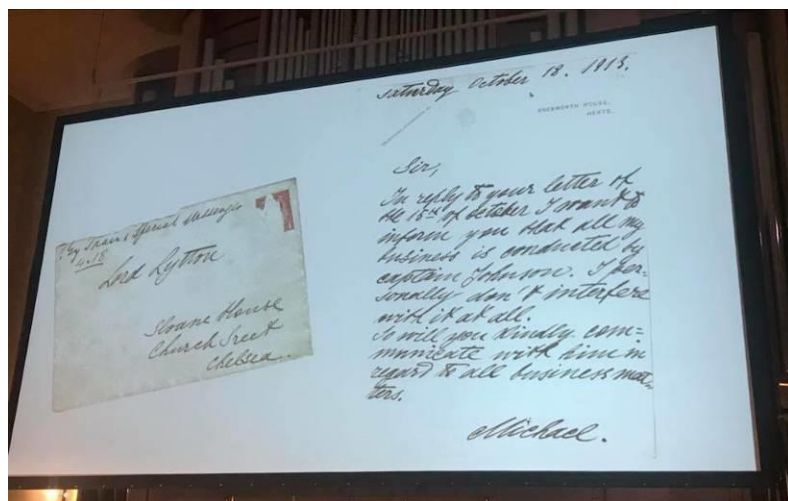 By Train & Special Messenger
4.18
Lord Lytton
Sloane House
Church Sreet
Chelsea.
Saturday October 18. 1913.
KNEBWORTH HOUSE,
HERTS.
Sir,
In reply to your letter of
the 15th of october I want to
inform you that all my
business is conducted by
captain Johnson. I per-
sonally don't interfere
with it at all.
So will you kindly com=
municate with him in
regard to all business mat-
ters.
Michael.